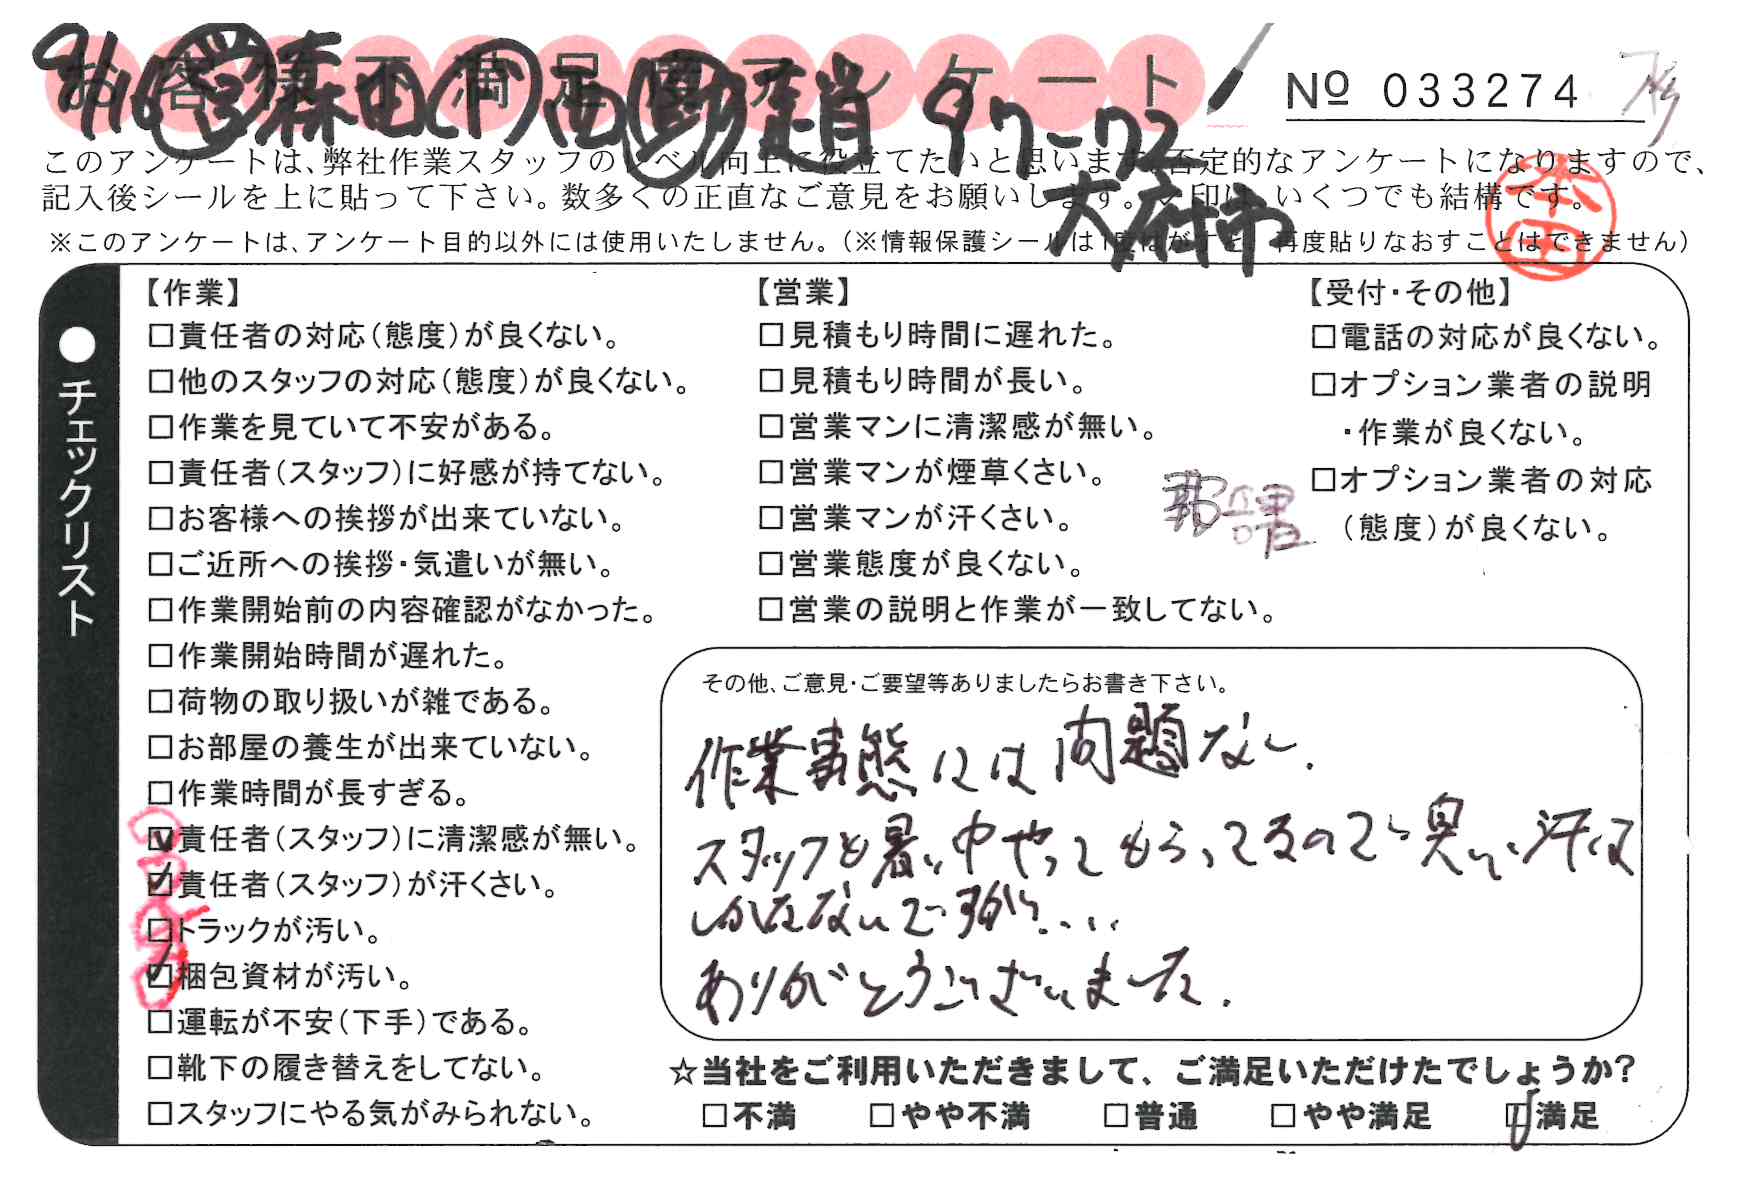 お客様不満足度アンケート
№ 033274
9/16 営 森田 下 西 助 走肖 97-72
大府市
このアンケートは、弊社作業スタッフのレベル向上に役立てたいと思います。否定的なアンケートになりますので、
記入後シールを上に貼って下さい。数多くの正直なご意見をお願いします。✓印は、いくつでも結構です。
※このアンケートは、アンケート目的以外には使用いたしません。(※情報保護シールは1度はがすと、再度貼りなおすことはできません)
●チェックリスト
【作業】
□責任者の対応(態度)が良くない。
□他のスタッフの対応(態度)が良くない。
□作業を見ていて不安がある。
□責任者(スタッフ)に好感が持てない。
□お客様への挨拶が出来ていない。
□ご近所への挨拶・気遣いが無い。
□作業開始前の内容確認がなかった。
□作業開始時間が遅れた。
□荷物の取り扱いが雑である。
□お部屋の養生が出来ていない。
□作業時間が長すぎる。
☑責任者(スタッフ)に清潔感が無い。
☑責任者(スタッフ)が汗くさい。
□トラックが汚い。
☑梱包資材が汚い。
□運転が不安(下手)である。
□靴下の履き替えをしてない。
□スタッフにやる気がみられない。
【営業】
□見積もり時間に遅れた。
□見積もり時間が長い。
□営業マンに清潔感が無い。
□営業マンが煙草くさい。
□営業マンが汗くさい。
□営業態度が良くない。
□営業の説明と作業が一致してない。
【受付・その他】
□電話の対応が良くない。
□オプション業者の説明
・作業が良くない。
□オプション業者の対応
(態度)が良くない。
その他、ご意見・ご要望等ありましたらお書き下さい。
作業事態には問題なし.
スタッフも暑い中やってもらってるので臭い、汗は
しかたないですが....
ありがとうございました.
☆当社をご利用いただきまして、ご満足いただけたでしょうか?
□不満 □やや不満 □普通 □やや満足 ☑満足